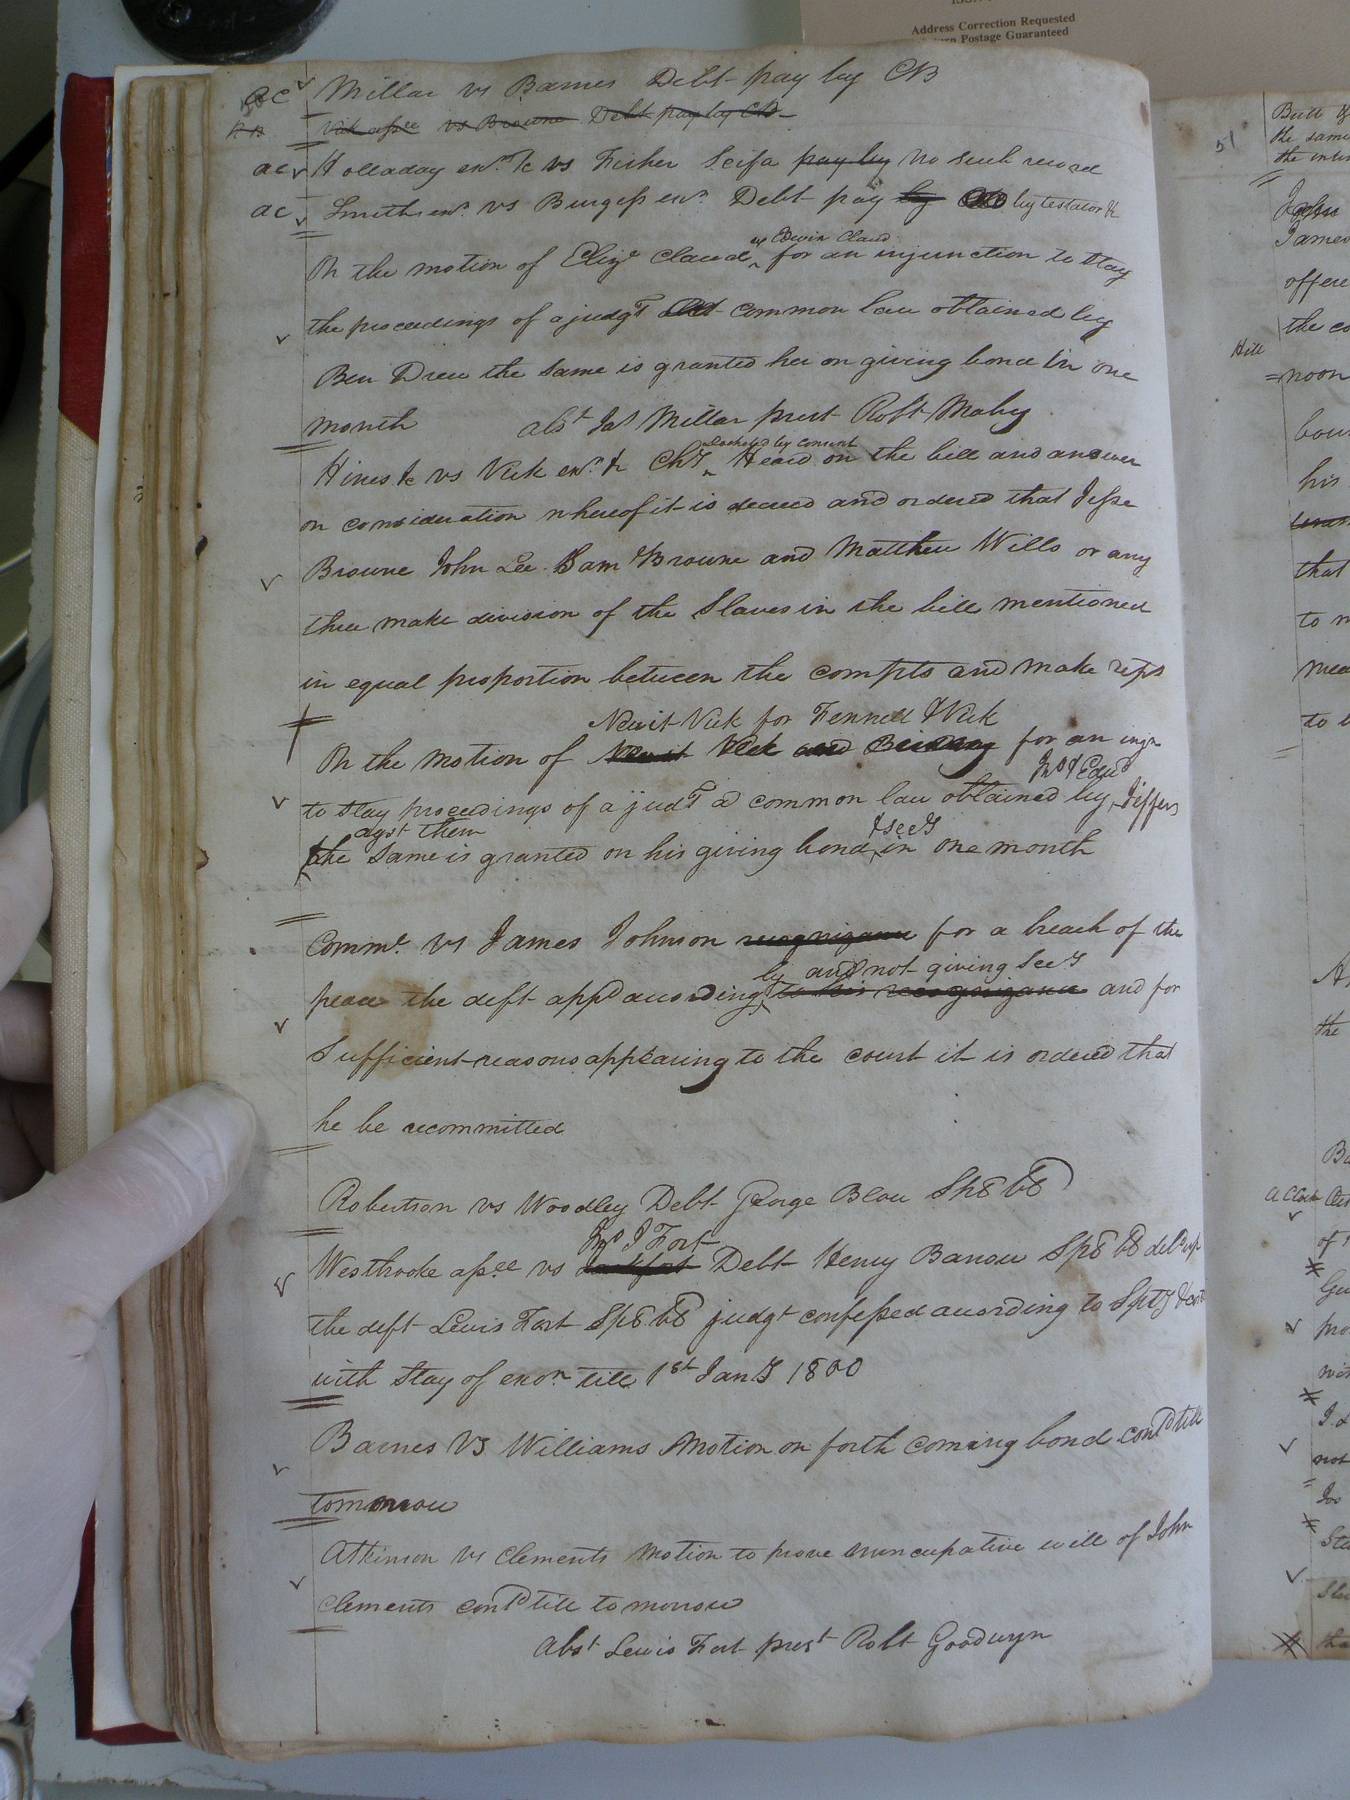 Address Correction Requested
Postage Guaranteed
ac Millar vs Barnes Debt pay by CB
vs Browne Debt pay by CB
ac Holladay exr. &c vs Fisher Scifa pay by No such record
ac Smiths exr. vs Burgess exr. Debt pay by by testator &c
Edwin Claud
On the motion of Eliza Claud for an injunction to stay
the proceedings of a judgt common law obtained by
Ben Drew the same is granted her on giving bond in one
month abst Jas Millar prest Robt Mabry
docketed by consent
Hines &c vs Vick exr. &c Chy Heard on the bill and answer
on consideration whereof it is decreed and ordered that Jesse
Browne John Lee Sam Browne and Matthew Wills or any
three make division of the Slaves in the bill mentioned
in equal proportion between the complts and make repo
Newit Vick for Fennell & Vick
On the motion of Newit Vick and for an injn
Jno & Edwd
to stay proceedings of a judt a common law obtained by Jiffers
agst them & secy
the same is granted on his giving bond in one month
Commth vs James Johnson recognizance for a breach of the
by and not giving Secy
peace the deft appd according to his recognizance and for
Sufficient reasons appearing to the court it is ordered that
he be recommitted
Robertson vs Woodley Debt George Blow Spl bl
Jno J Fort
Westbrooke assee vs Debt Henry Barrow Spl bl deld up
the deft Lewis Fort Spl bl judgt confessed according to Spty & costs
with stay of exon till 1st Jany 1800
Barnes vs Williams Motion on forth coming bond contd till
tomorrow
Atkinson vs Clements Motion to prove nuncupative will of John
Clements contd till tomorrow
Abst Lewis Fort prest Robt Goodwyn
51
the same
John
James
offere
the co
Hill
noon
bou
his
that
to
mea
to
the
of
not